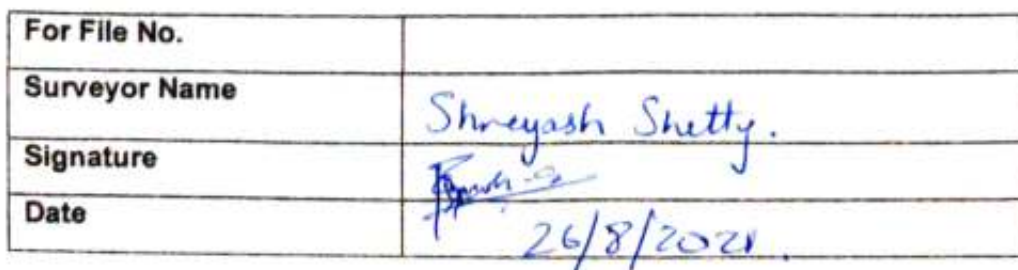 For File No.
Surveyor Name Shreyash Shetty.
Signature
Date 26/8/2021.